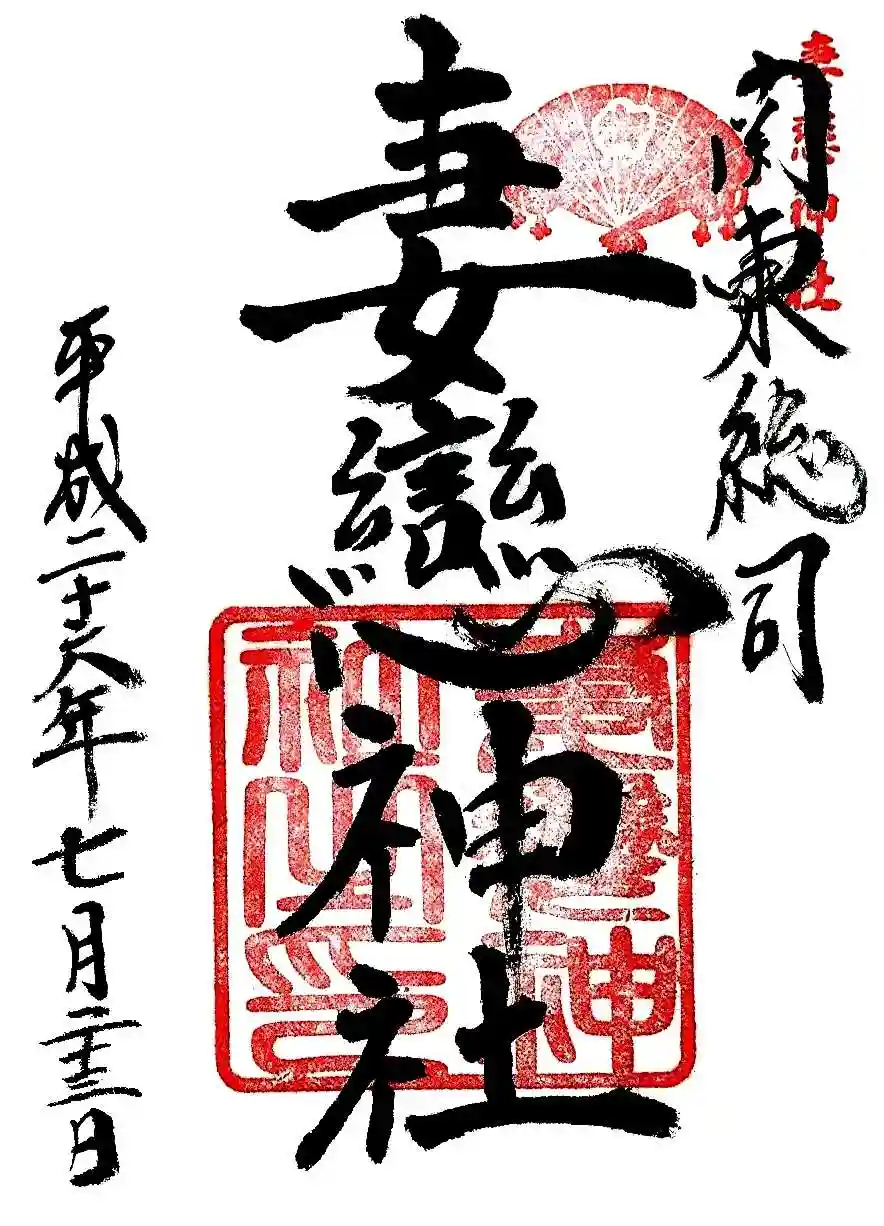 妻戀神社
関東総司
妻戀神社
妻戀神
社之印
平成二十六年七月二十三日